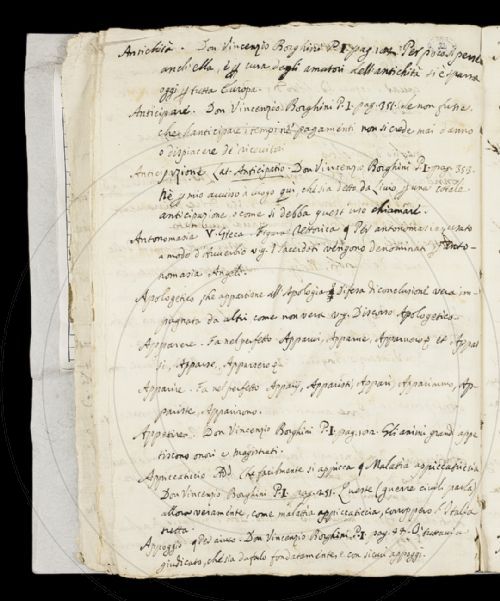 Antichità. Don Vincenzio Borghini P. I. pag. Per poco si perse
anch'ella, e cura degli amatori dell'antichità si è sparsa
oggi tutta Europa.
Anticipare. Don Vincenzio Borghini P. I. pag. 351. Se non fusse
che l'anticipare i tempi ne' pagamenti non si cade mai danno
o dispiacere de'
Anticipazione Lat. Anticipatio. Don Vincenzio Borghini P. I. pag. 353.
Nè mio avviso à luogo qui, che sia detto da Livio una cotale
anticipazione, o come si debba quest'uso chiamare.
Antonomasia V. Greca. Figura Rettorica Per antonomasia usato
a modo d'Avverbio v.g. I Sacerdoti vengono denominati Anto-
nomasia Angeli.
Apologetico, che appartiene all'Apologia Difesa di conclusione vera im-
pugnata da altri come non vera v.g. Discorso Apologetico.
Apparere. Fa nel perfetto Apparvi, Apparve, Apparvero et Appar-
si, Apparse, Apparsero
Apparire. Fa nel perfetto Apparij, Apparisti, Apparì, Apparimmo, Ap-
pariste, Apparirono.
Appetire. Don Vincenzio Borghini P. I. pag. 102. Gli animi grandi appe-
tiscono onori e magistrati.
Appiccaticcio Add. Che facilmente si appicca Malattia appiccaticcia
Don Vincenzio Borghini P. I. pag. 251. Queste (guerre civili parla)
allora veramente, come malattia appiccaticcia, corroppero l'Italia
tutta.
Appoggio Don Vincenzio Borghini P. I. pag.
giudicato, che sia da farlo fondatamente, e con sicuri appoggi.